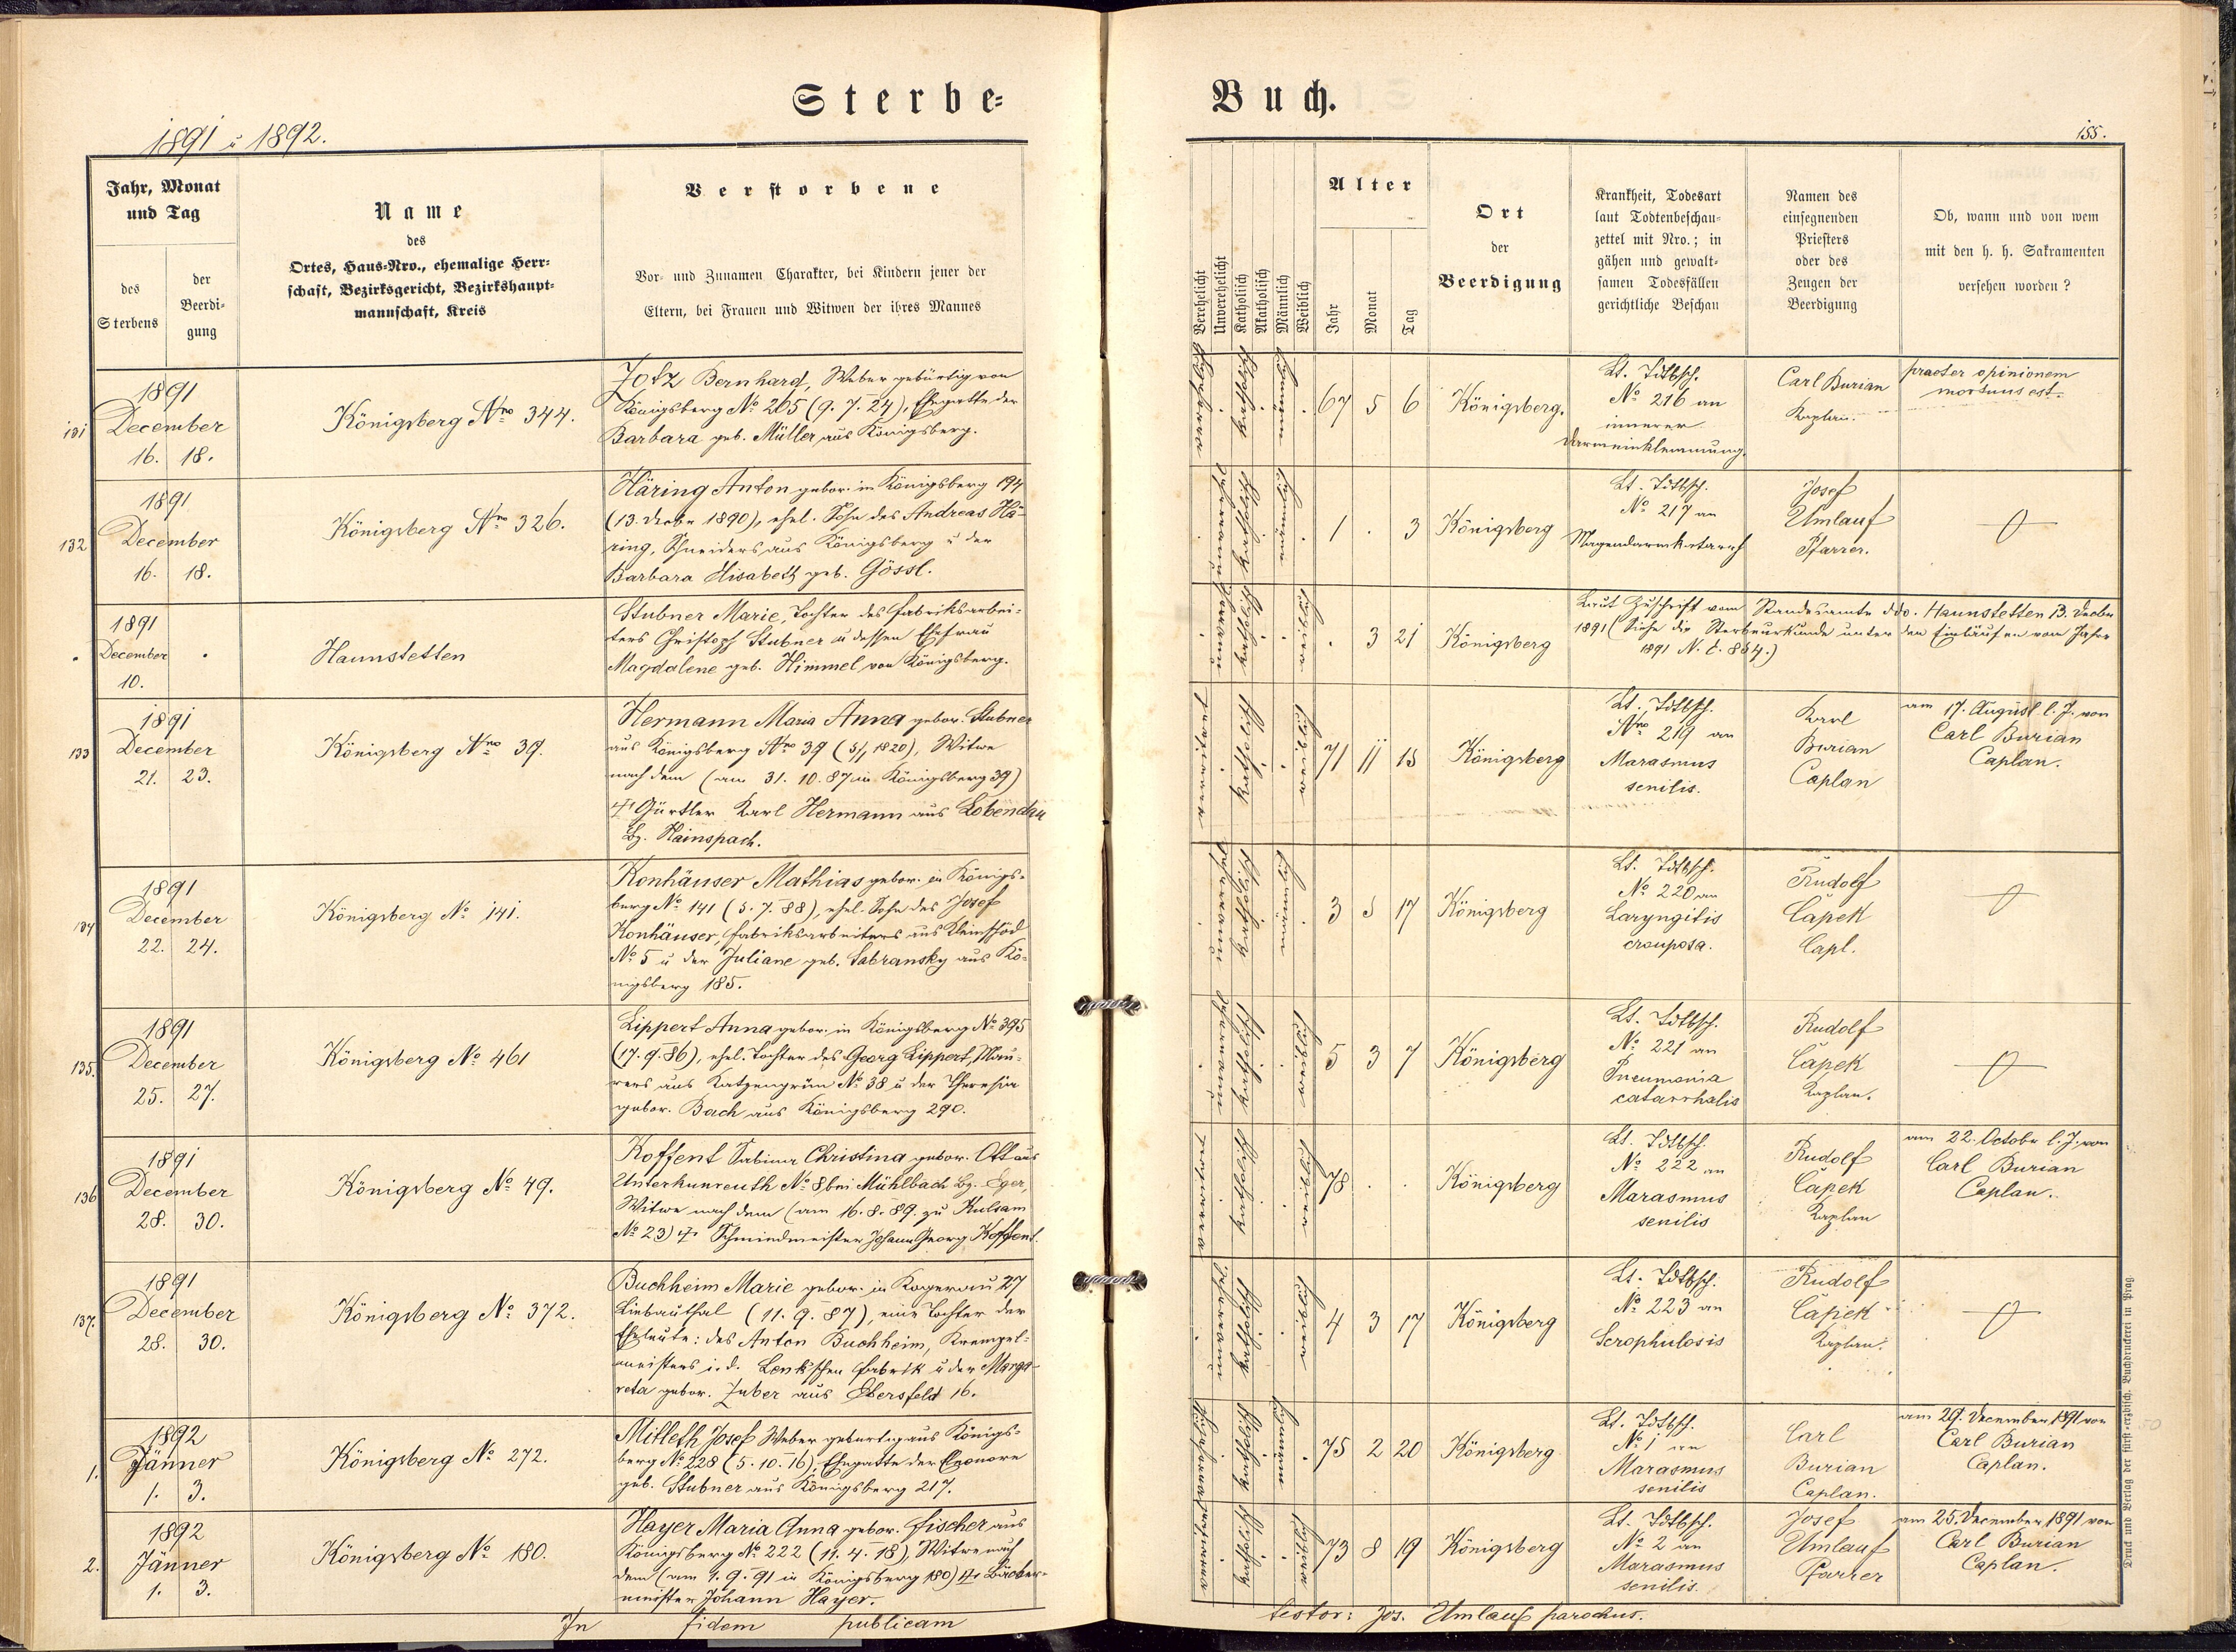 Sterbe-
Buch.
1891 u 1892.
155.
Jahr, Monat
und Tag
des
Sterbens
der
Beerdi-
gung
Name
des
Ortes, Haus-Nro., ehemalige Herr-
schaft, Bezirksgericht, Bezirkshaupt-
mannschaft, Kreis
Verstorbene
Vor- und Zunamen Charakter, bei Kindern jener der
Eltern, bei Frauen und Witwen der ihres Mannes
Verehelicht
Unverehelicht
Katholisch
Akatholisch
Männlich
Weiblich
Alter
Jahr
Monat
Tag
Ort
der
Beerdigung
Krankheit, Todesart
laut Todtenbeschau-
zettel mit Nro.; in
gähen und gewalt-
samen Todesfällen
gerichtliche Beschau
Namen des
einsegnenden
Priesters
oder des
Zeugen der
Beerdigung
Ob, wann und von wem
mit den h. h. Sakramenten
versehen worden?
131
1891
December
16. 18.
Königsberg Nro 344.
Jotz Bernhard, Weber gebürtig von
Königsberg No 205 (9. 7. 24), Ehegatte der
Barbara geb. Müller aus Königsberg.
verehelicht
katholisch
männlich
67 5 6
Königsberg.
Lt. Tdtbsch.
No 216 an
innerer
Darmeinklemmung.
Carl Burian
Kaplan.
praeter opinionem
mortuus est.
132
1891
December
16. 18.
Königsberg Nro 326.
Häring Anton gebor. in Königsberg 194
(13. Decbr 1890), ehel. Sohn des Andreas Hä-
ring, Schneiders aus Königsberg u der
Barbara Elisabeth geb. Gössl.
unverehel.
katholisch
männlich
1 . 3
Königsberg
Lt. Tdtbsch.
No 217 an
Magendarmkatarrh
Josef
Umlauf
Pfarrer.
1891
December
10.
Haunstetten
Stubner Marie, Tochter des Fabriksarbei-
ters Christoph Stubner u dessen Ehefrau
Magdalene geb. Himmel von Königsberg.
unverehel
katholisch
weiblich
. 3 21
Königsberg
Laut Zuschrift vom Standesamte ddo. Haunstetten 13. Decbr
1891 (Siehe die Sterbeurkunde unter den Einläufen vom Jahre
1891 N. E. 854.)
133
1891
December
21. 23.
Königsberg Nro 39.
Hermann Maria Anna gebor. Stubner
aus Königsberg Nro 39 (5/1 1820), Witwe
nach dem (am 31. 10. 87 in Königsberg 39)
† Gürtler Karl Hermann aus Lobendau
Bz. Hainspach.
verwitwet
katholisch
weiblich
71 11 15
Königsberg
Lt. Tdtbsch.
Nro 219 an
Marasmus
senilis.
Karl
Burian
Caplan
am 17. August l. J. von
Carl Burian
Caplan.
134
1891
December
22. 24.
Königsberg No 141.
Konhäuser Mathias gebor. in Königs-
berg No 141 (5. 7. 88), ehel. Sohn des Josef
Konhäuser, Fabriksarbeiters aus Kleinschöd
No 5 u der Juliane geb. Sabransky aus Kö-
nigsberg 185.
unverehel
katholisch
männlich
3 5 17
Königsberg
Lt. Tdtbsch.
No 220 an
Laryngitis
crouposa.
Rudolf
Čapek
Capl.
135.
1891
December
25. 27.
Königsberg No 461
Lippert Anna gebor. in Königsberg No 395
(17. 9. 86), ehel. Tochter des Georg Lippert, Mau-
rers aus Katzengrün No 38 u der Theresia
gebor. Bach aus Königsberg 290.
unverehel
katholisch
weiblich
5 3 7
Königsberg
Lt. Tdtbsch.
No 221 an
Pneumonia
catarrhalis
Rudolf
Čapek
Kaplan.
136
1891
December
28. 30.
Königsberg No 49.
Koffent Sabina Christina gebor. Ott aus
Unterkunreuth No 8 bei Mühlbach Bz. Eger,
Witwe nach dem (am 16. 8. 89. zu Kulsam
No 23) † Schmiedmeister Johann Georg Koffent.
verwitwet
katholisch
weiblich
78 . .
Königsberg
Lt. Tdtbsch.
No 222 an
Marasmus
senilis
Rudolf
Čapek
Kaplan
am 22. Octobr l. J. von
Carl Burian
Caplan.
137.
1891
December
28. 30.
Königsberg No 372.
Buchheim Marie gebor. in Kogerau 27
Liebauthal (11. 9. 87), eine Tochter der
Eheleute: des Anton Buchheim, Krempel-
meisters i. d. Lenkischen Fabrik u der Marga-
reta gebor. Zuber aus Ebersfeld 16.
unverehel.
katholisch
weiblich
4 3 17
Königsberg
Lt. Tdtbsch.
No 223 an
Scrophulosis
Rudolf
Čapek
Kaplan.
1.
1892
Jänner
1. 3.
Königsberg No 272.
Mitleth Josef Weber gebürtig aus Königs-
berg No 228 (5. 10. 16), Ehegatte der Eleonore
geb. Stubner aus Königsberg 217.
verehelicht
katholisch
männl
75 2 20
Königsberg
Lt. Tdtbsch.
No 1 an
Marasmus
senilis
Carl
Burian
Caplan.
am 29. December 1891 von
Carl Burian
Caplan.
2.
1892
Jänner
1. 3.
Königsberg No 180.
Hayer Maria Anna gebor. Fischer aus
Königsberg No 222 (11. 4. 18), Witwe nach
dem (am 1. 9. 91 in Königsberg 180) † Bäcker-
meister Johann Hayer.
verwitwet
katholisch
weiblich
73 8 19
Königsberg
Lt. Tdtbsch.
No 2 an
Marasmus
senilis.
Josef
Umlauf
Pfarrer
am 25. December 1891 von
Carl Burian
Caplan.
In fidem publicam
testor: Jos. Umlauf parochus.
Druck und Verlag der fürst-erzbisch. Buchdruckerei in Prag.